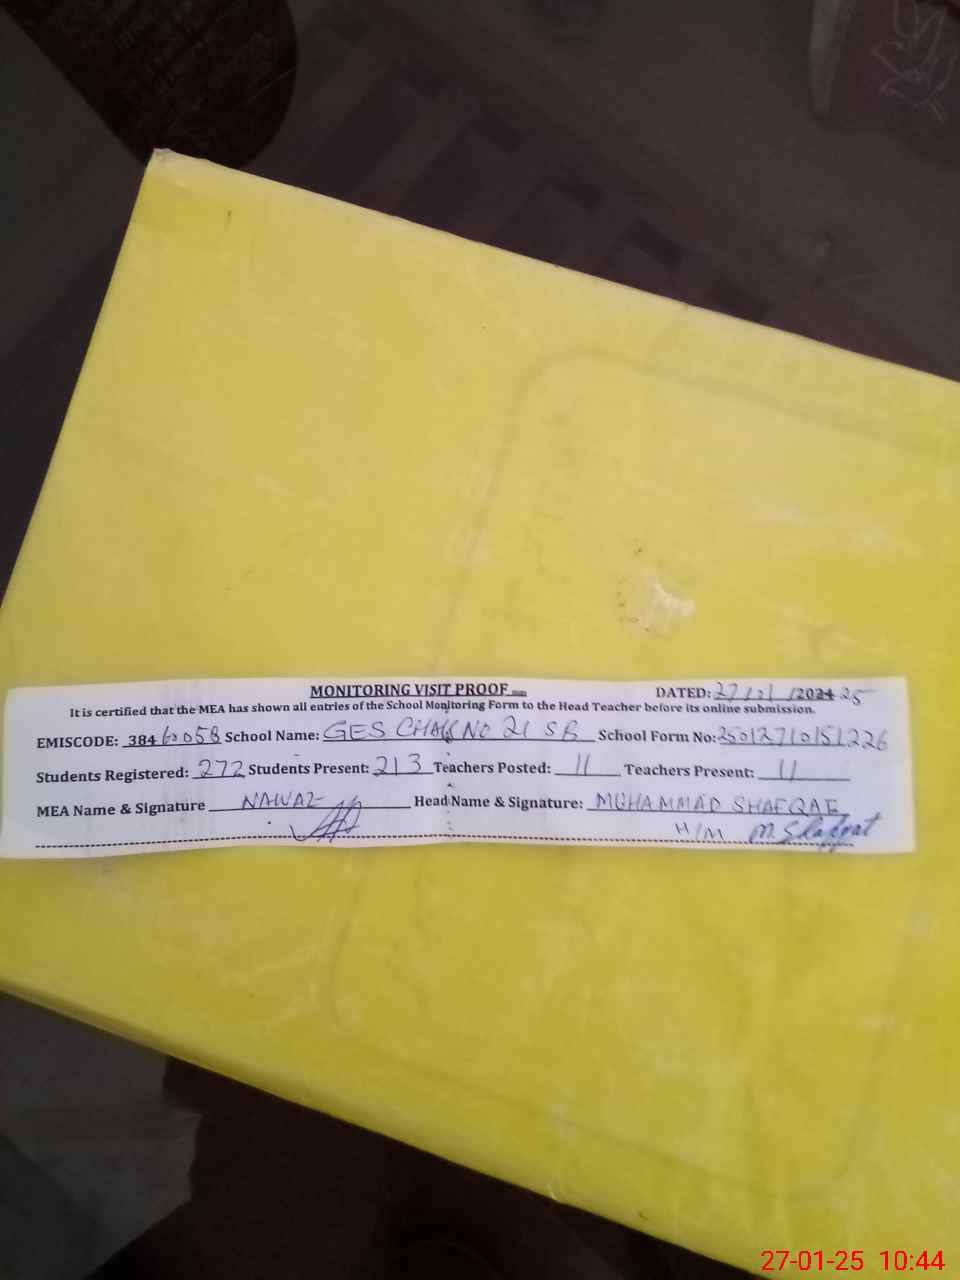 MONITORING VISIT PROOF
DATED: 27/01/2024 25
It is certified that the MEA has shown all entries of the School Monitoring Form to the Head Teacher before its online submission.
EMISCODE: 38460058 School Name: GES CHAK NO 21 SB School Form No: 25012710151226
Students Registered: 272 Students Present: 213 Teachers Posted: 11 Teachers Present: 11
MEA Name & Signature NAWAZ Head Name & Signature: MUHAMMAD SHAFQAT
H/M M. Shafqat
27-01-25 10:44